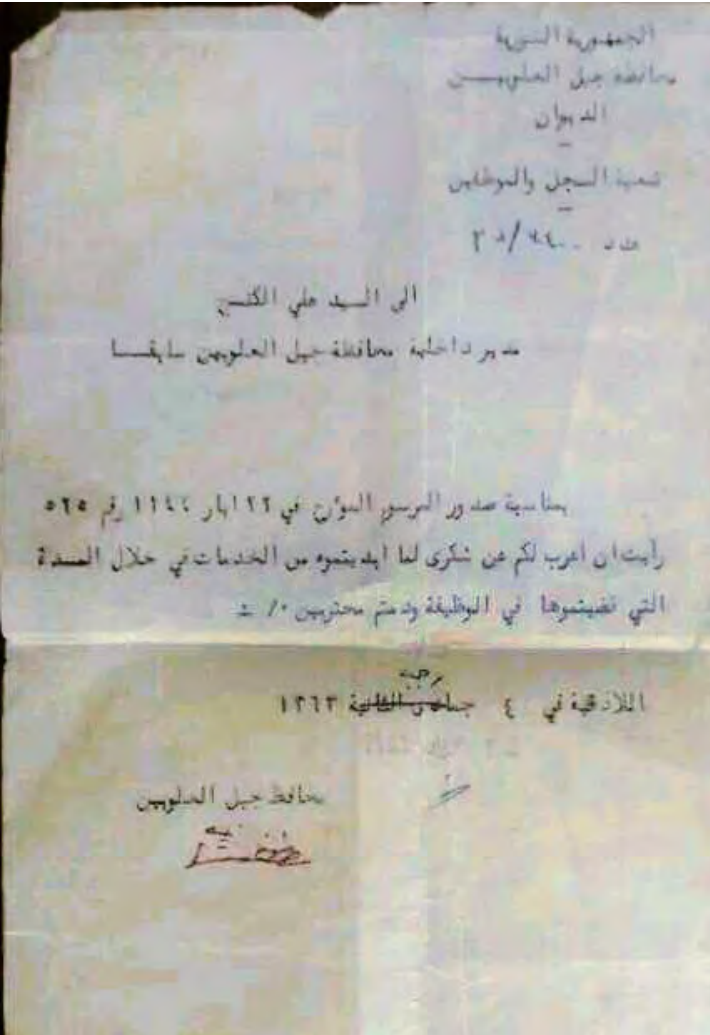 الجمهورية السورية
محافظة جبل العلويين
الديوان
شعبة السجل والموظفين
عدد
الى السيد علي الكنج
مدير داخلية محافظة جبل العلويين سابقا
بمناسبة صدور المرسوم المؤرخ في ٢٢ ايار ١٩٤٤ رقم ٥٦٥
رأيت ان اعرب لكم عن شكرى لما ابديتموه من الخدمات في خلال المدة
التي قضيتموها في الوظيفة ودمتم محترمين ./.
رجب
اللاذقية في ٤ جمادى الثانية ١٣٦٣
محافظ جبل العلويين